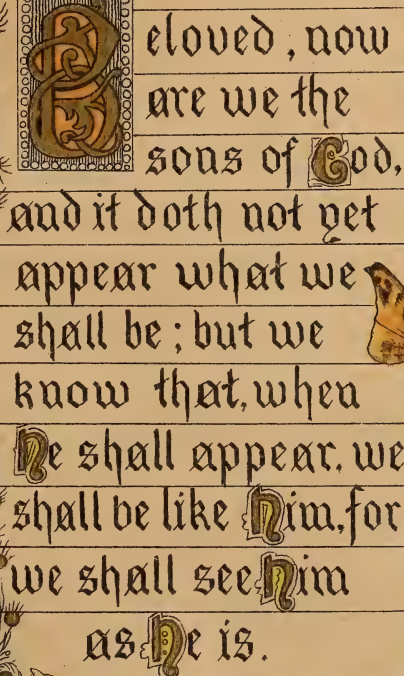 Beloved, now
are we the
sons of God,
and it doth not yet
appear what we
shall be; but we
know that, when
He shall appear, we
shall be like Him, for
we shall see Him
as He is.